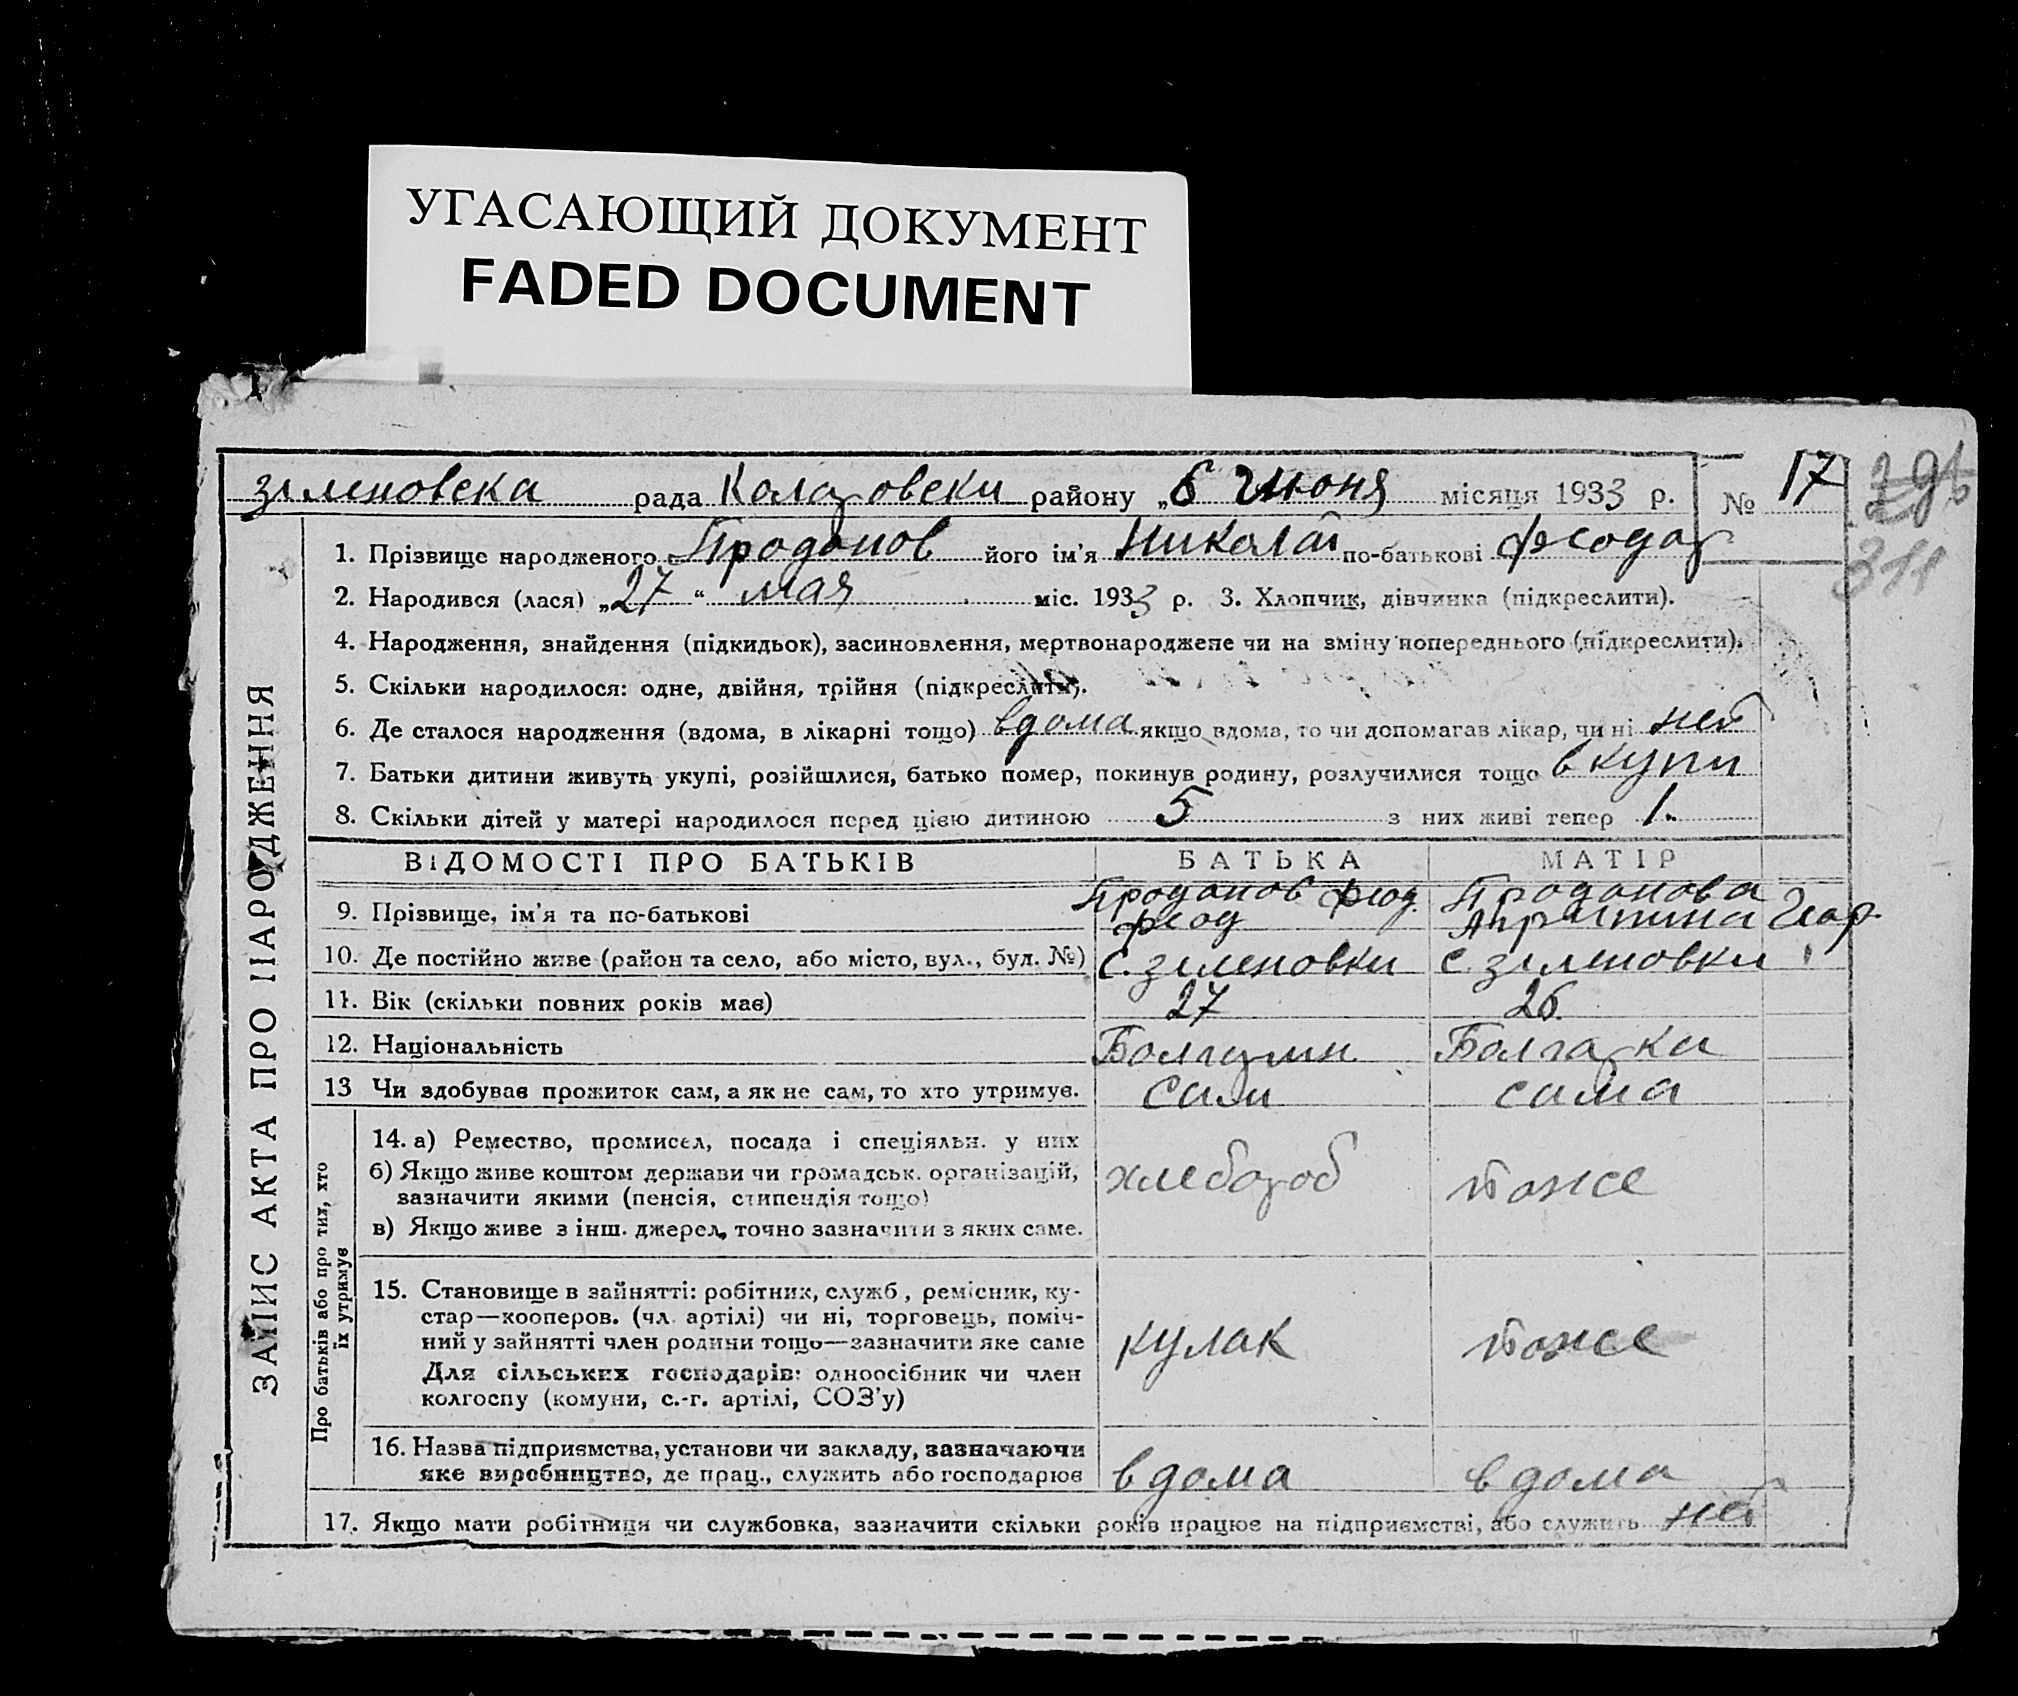 УГАСАЮЩИЙ ДОКУМЕНТ
FADED DOCUMENT
зіленовска рада Коларовски району „6 Июня місяця 1933 р. № 17
296
311
ЗАПИС АКТА ПРО НАРОДЖЕННЯ
1. Прізвище народженого Проданов його ім'я Николай по-батькові Феодор
2. Народився (лася) „27 “ мая міс. 1933 р. 3. Хлопчик, дівчинка (підкреслити).
4. Народження, знайдення (підкидьок), засиновлення, мертвонароджене чи на зміну попереднього (підкреслити).
5. Скільки народилося: одне, двійня, трійня (підкреслити).
6. Де сталося народження (вдома, в лікарні тощо) вдома якщо вдома, то чи допомагав лікар, чи ні нет
7. Батьки дитини живуть укупі, розійшлися, батько помер, покинув родину, розлучилися тощо вкупи
8. Скільки дітей у матері народилося перед цією дитиною 5 з них живі тепер 1.
ВІДОМОСТІ ПРО БАТЬКІВ БАТЬКА МАТІР
9. Прізвище, ім'я та по-батькові Проданов Феод. Феод Проданова Геор.
10. Де постійно живе (район та село, або місто, вул., буд. №) с. зіленовки с. зіленовки
11. Вік (скільки повних років має) 27 26.
12. Національність Болгарин Болгарки
13 Чи здобував прожиток сам, а як не сам, то хто утримує. Сам сама
Про батьків або про тих, хто
їх утримує
14. а) Ремество, промисел, посада і спеціяльн. у них
б) Якщо живе коштом держави чи громадськ. організацій,
зазначити якими (пенсія, стипендія тощо)
в) Якщо живе з інш. джерел, точно зазначити з яких саме.
хлебороб тоже
15. Становище в зайнятті: робітник, служб., ремісник, ку-
стар—кооперов. (чл. артілі) чи ні, торговець, поміч-
ний у зайнятті член родини тощо—зазначити яке саме
Для сільських господарів: одноосібник чи член
колгоспу (комуни, с.-г. артілі, СОЗ'у)
кулак тоже
16. Назва підприємства, установи чи закладу, зазначаючи
яке виробництво, де прац., служить або господарює вдома вдома
17. Якщо мати робітниця чи службовка, зазначити скільки років працює на підприємстві, або служить нет